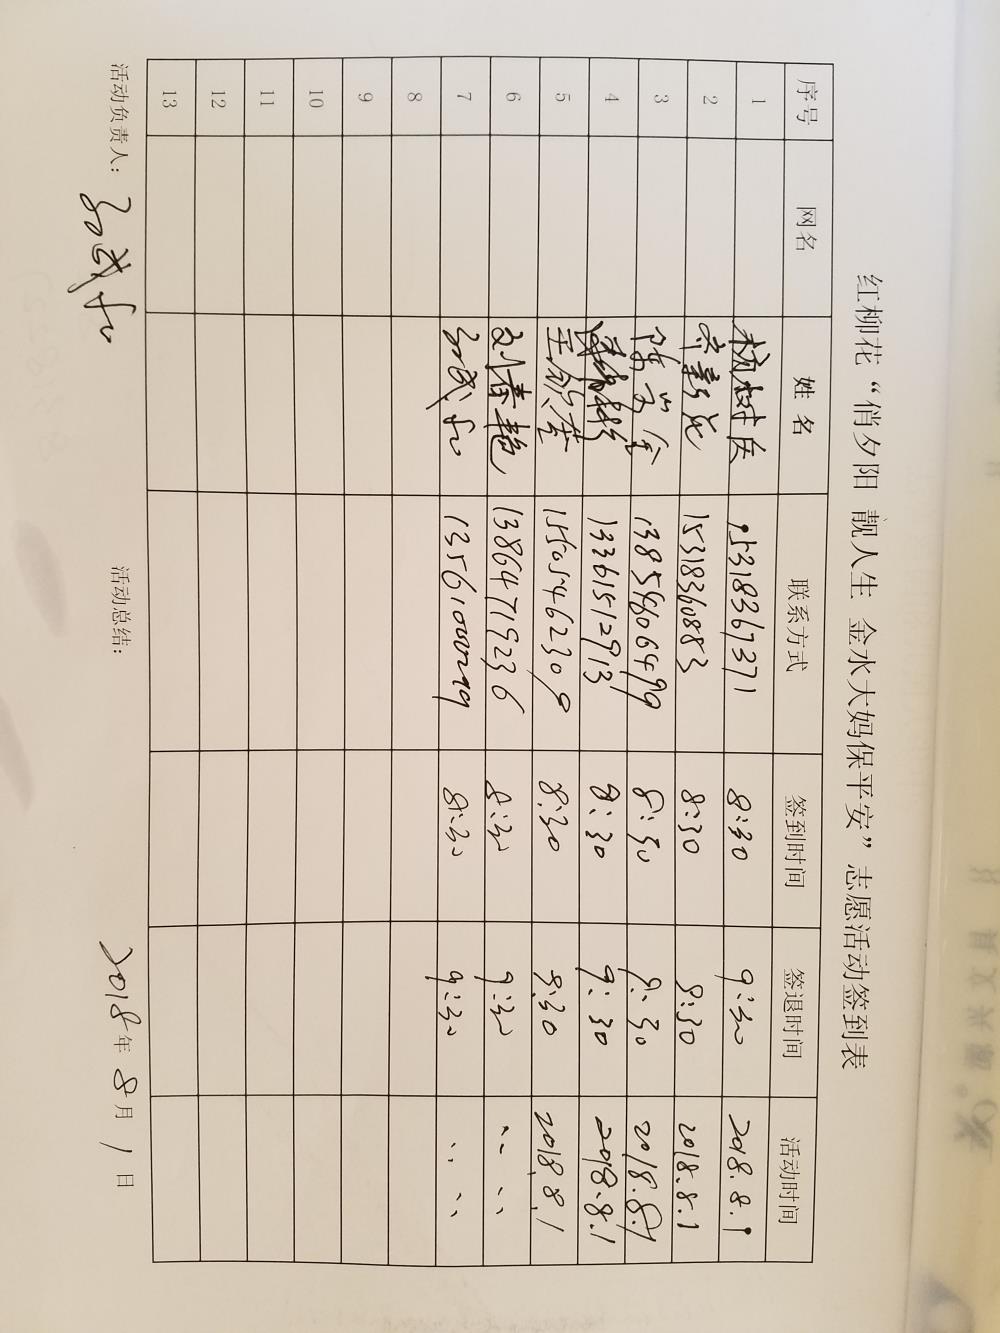 红柳花“俏夕阳 靓人生 金水大妈保平安”志愿活动签到表
序号 网名 姓名 联系方式 签到时间 签退时间 活动时间
1 杨树庆 15318367371 8:30 9:30 2018.8.1
2 15318360883 8:30 9:30 2018.8.1
3 8:30 9:30 2018.8.1
4 13361512913 8:30 9:30 2018.8.1
5 15505462309 8:30 9:30 2018.8.1
6 刘春艳 13864719236 8:30 9:30 〃 〃
7 8:30 9:30 〃 〃
8
9
10
11
12
13
活动负责人: 活动总结: 2018年8月1日